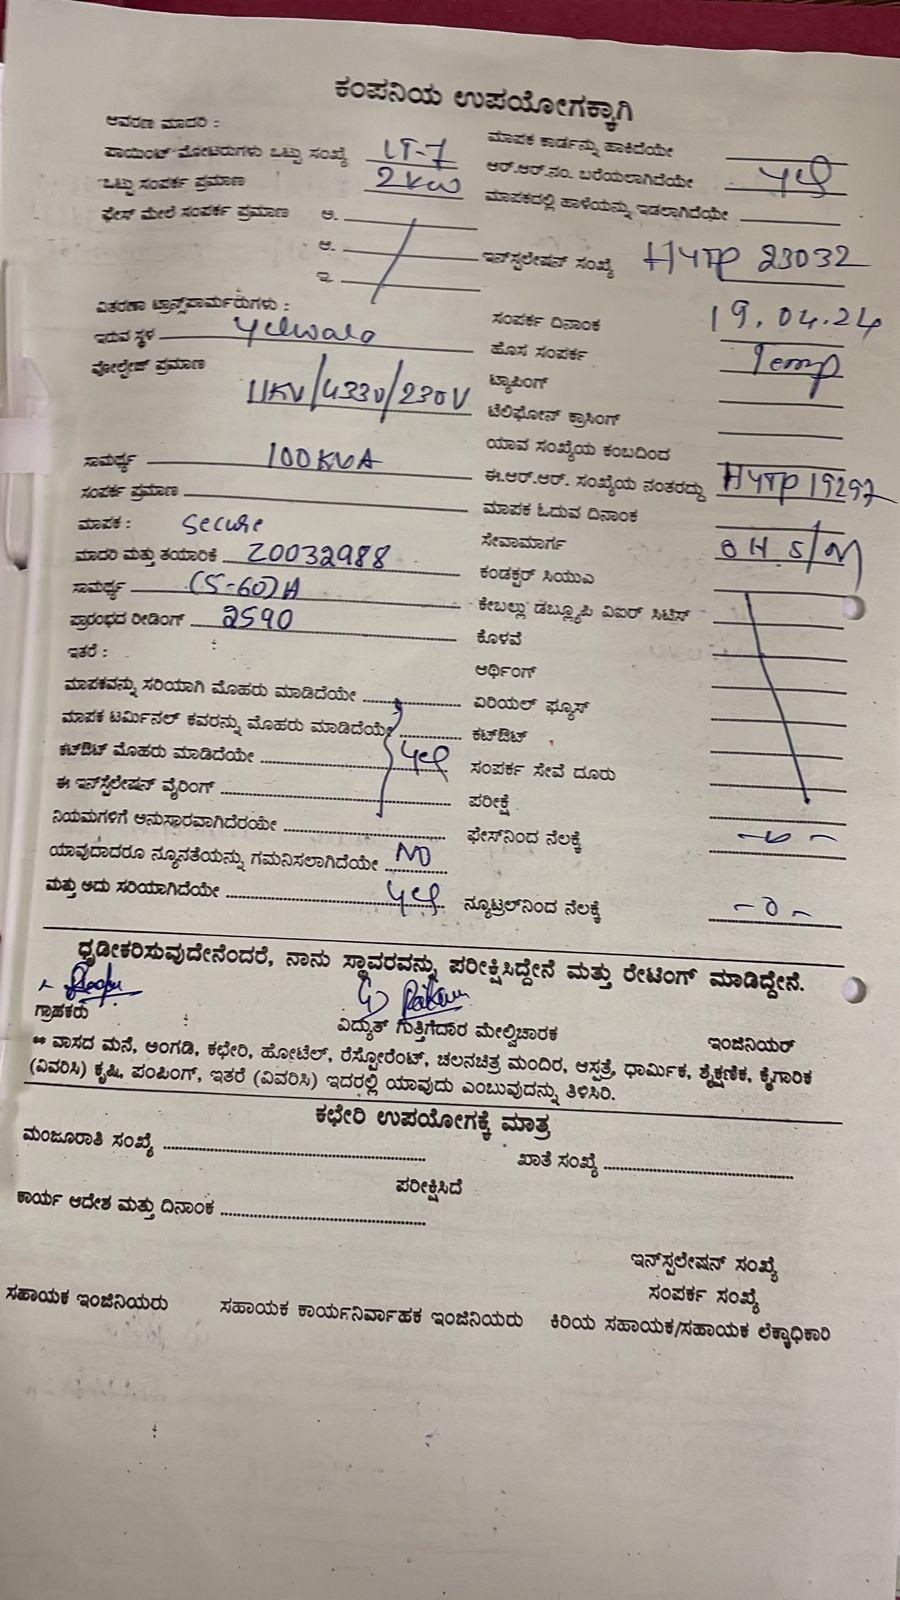 ಕಂಪನಿಯ ಉಪಯೋಗಕ್ಕಾಗಿ
ಆವರಣ ಮಾದರಿ :
ಪಾಯಿಂಟ್ ಮೋಟರುಗಳು ಒಟ್ಟು ಸಂಖ್ಯೆ LT-7
ಒಟ್ಟು ಸಂಪರ್ಕ ಪ್ರಮಾಣ 2 KW
ಫೇಸ್ ಮೇಲೆ ಸಂಪರ್ಕ ಪ್ರಮಾಣ ಅ.
ಆ.
ಇ.
ವಿತರಣಾ ಟ್ರಾನ್ಸ್‌ಪಾರ್ಮರುಗಳು :
ಇರುವ ಸ್ಥಳ Yelwala
ವೋಲ್ಟೇಜ್ ಪ್ರಮಾಣ
11KV/4330/230V
ಸಾಮರ್ಥ್ಯ 100 KVA
ಸಂಪರ್ಕ ಪ್ರಮಾಣ
ಮಾಪಕ : Secure
ಮಾದರಿ ಮತ್ತು ತಯಾರಿಕೆ 20032988
ಸಾಮರ್ಥ್ಯ (5-60)A
ಪ್ರಾರಂಭದ ರೀಡಿಂಗ್ 2590
ಇತರೆ :
ಮಾಪಕವನ್ನು ಸರಿಯಾಗಿ ಮೊಹರು ಮಾಡಿದೆಯೇ
ಮಾಪಕ ಟರ್ಮಿನಲ್ ಕವರನ್ನು ಮೊಹರು ಮಾಡಿದೆಯೇ
ಕಟ್‌ಔಟ್ ಮೊಹರು ಮಾಡಿದೆಯೇ yes
ಈ ಇನ್‌ಸ್ಟೆಲೇಷನ್ ವೈರಿಂಗ್
ನಿಯಮಗಳಿಗೆ ಅನುಸಾರವಾಗಿದೆರಯೇ
ಯಾವುದಾದರೂ ನ್ಯೂನತೆಯನ್ನು ಗಮನಿಸಲಾಗಿದೆಯೇ NO
ಮತ್ತು ಅದು ಸರಿಯಾಗಿದೆಯೇ yes
ಮಾಪಕ ಕಾರ್ಡನ್ನು ಹಾಕಿದೆಯೇ
ಆರ್.ಆರ್.ನಂ. ಬರೆಯಲಾಗಿದೆಯೇ yes
ಮಾಪಕದಲ್ಲಿ ಹಾಳೆಯನ್ನು ಇಡಲಾಗಿದೆಯೇ
ಇನ್‌ಸ್ಟಲೇಷನ್ ಸಂಖ್ಯೆ HYTP 23032
ಸಂಪರ್ಕ ದಿನಾಂಕ 19.04.24
ಹೊಸ ಸಂಪರ್ಕ Temp
ಟ್ಯಾಪಿಂಗ್
ಟೆಲಿಫೋನ್ ಕ್ರಾಸಿಂಗ್
ಯಾವ ಸಂಖ್ಯೆಯ ಕಂಬದಿಂದ
ಈ.ಆರ್.ಆರ್. ಸಂಖ್ಯೆಯ ನಂತರದ್ದು HYTP 19297
ಮಾಪಕ ಓದುವ ದಿನಾಂಕ
ಸೇವಾಮಾರ್ಗ OH S/M
ಕಂಡಕ್ಟರ್ ಸಿಯುಎ
ಕೇಬಲ್ಲು ಡಬ್ಲ್ಯೂಪಿ ವಿಐರ್ ಸಿಟಿಸ್
ಕೊಳವೆ
ಆರ್ಥಿಂಗ್
ಏರಿಯಲ್ ಫ್ಯೂಸ್
ಕಟ್‌ಔಟ್
ಸಂಪರ್ಕ ಸೇವೆ ದೂರು
ಪರೀಕ್ಷೆ
ಫೇಸ್‌ನಿಂದ ನೆಲಕ್ಕೆ
ನ್ಯೂಟ್ರಲ್‌ನಿಂದ ನೆಲಕ್ಕೆ -0-
ಧೃಡೀಕರಿಸುವುದೇನೆಂದರೆ, ನಾನು ಸ್ಥಾವರವನ್ನು ಪರೀಕ್ಷಿಸಿದ್ದೇನೆ ಮತ್ತು ರೇಟಿಂಗ್ ಮಾಡಿದ್ದೇನೆ.
ಗ್ರಾಹಕರು ವಿದ್ಯುತ್ ಗುತ್ತಿಗೆದಾರ ಮೇಲ್ವಿಚಾರಕ ಇಂಜಿನಿಯರ್
** ವಾಸದ ಮನೆ, ಅಂಗಡಿ, ಕಛೇರಿ, ಹೋಟೆಲ್, ರೆಸ್ಟೋರೆಂಟ್, ಚಲನಚಿತ್ರ ಮಂದಿರ, ಆಸ್ಪತ್ರೆ, ಧಾರ್ಮಿಕ, ಶೈಕ್ಷಣಿಕ, ಕೈಗಾರಿಕ
(ವಿವರಿಸಿ) ಕೃಷಿ, ಪಂಪಿಂಗ್, ಇತರೆ (ವಿವರಿಸಿ) ಇದರಲ್ಲಿ ಯಾವುದು ಎಂಬುವುದನ್ನು ತಿಳಿಸಿರಿ.
ಕಛೇರಿ ಉಪಯೋಗಕ್ಕೆ ಮಾತ್ರ
ಮಂಜೂರಾತಿ ಸಂಖ್ಯೆ ಖಾತೆ ಸಂಖ್ಯೆ
ಪರೀಕ್ಷಿಸಿದೆ
ಕಾರ್ಯ ಆದೇಶ ಮತ್ತು ದಿನಾಂಕ
ಇನ್‌ಸ್ಪಲೇಷನ್ ಸಂಖ್ಯೆ
ಸಂಪರ್ಕ ಸಂಖ್ಯೆ
ಸಹಾಯಕ ಇಂಜಿನಿಯರು ಸಹಾಯಕ ಕಾರ್ಯನಿರ್ವಾಹಕ ಇಂಜಿನಿಯರು ಕಿರಿಯ ಸಹಾಯಕ/ಸಹಾಯಕ ಲೆಕ್ಕಾಧಿಕಾರಿ